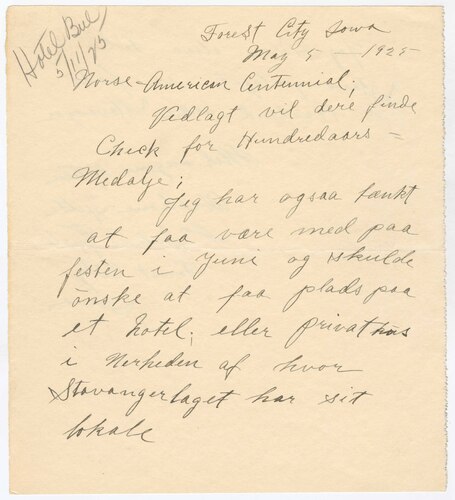 Hotel Bul
5/11/25
Forest City Iowa
May 5 - 1925
Norse-American Centennial;
Vedlagt vil dere finde
Check for Hundredaars=
Medalje;
Jeg har ogsaa tænkt
at faa være med paa
festen i Juni og skulde
önske at faa plads paa
et hotel; eller privathus
i Nerheden af hvor
Stavangerlaget har sit
lokale